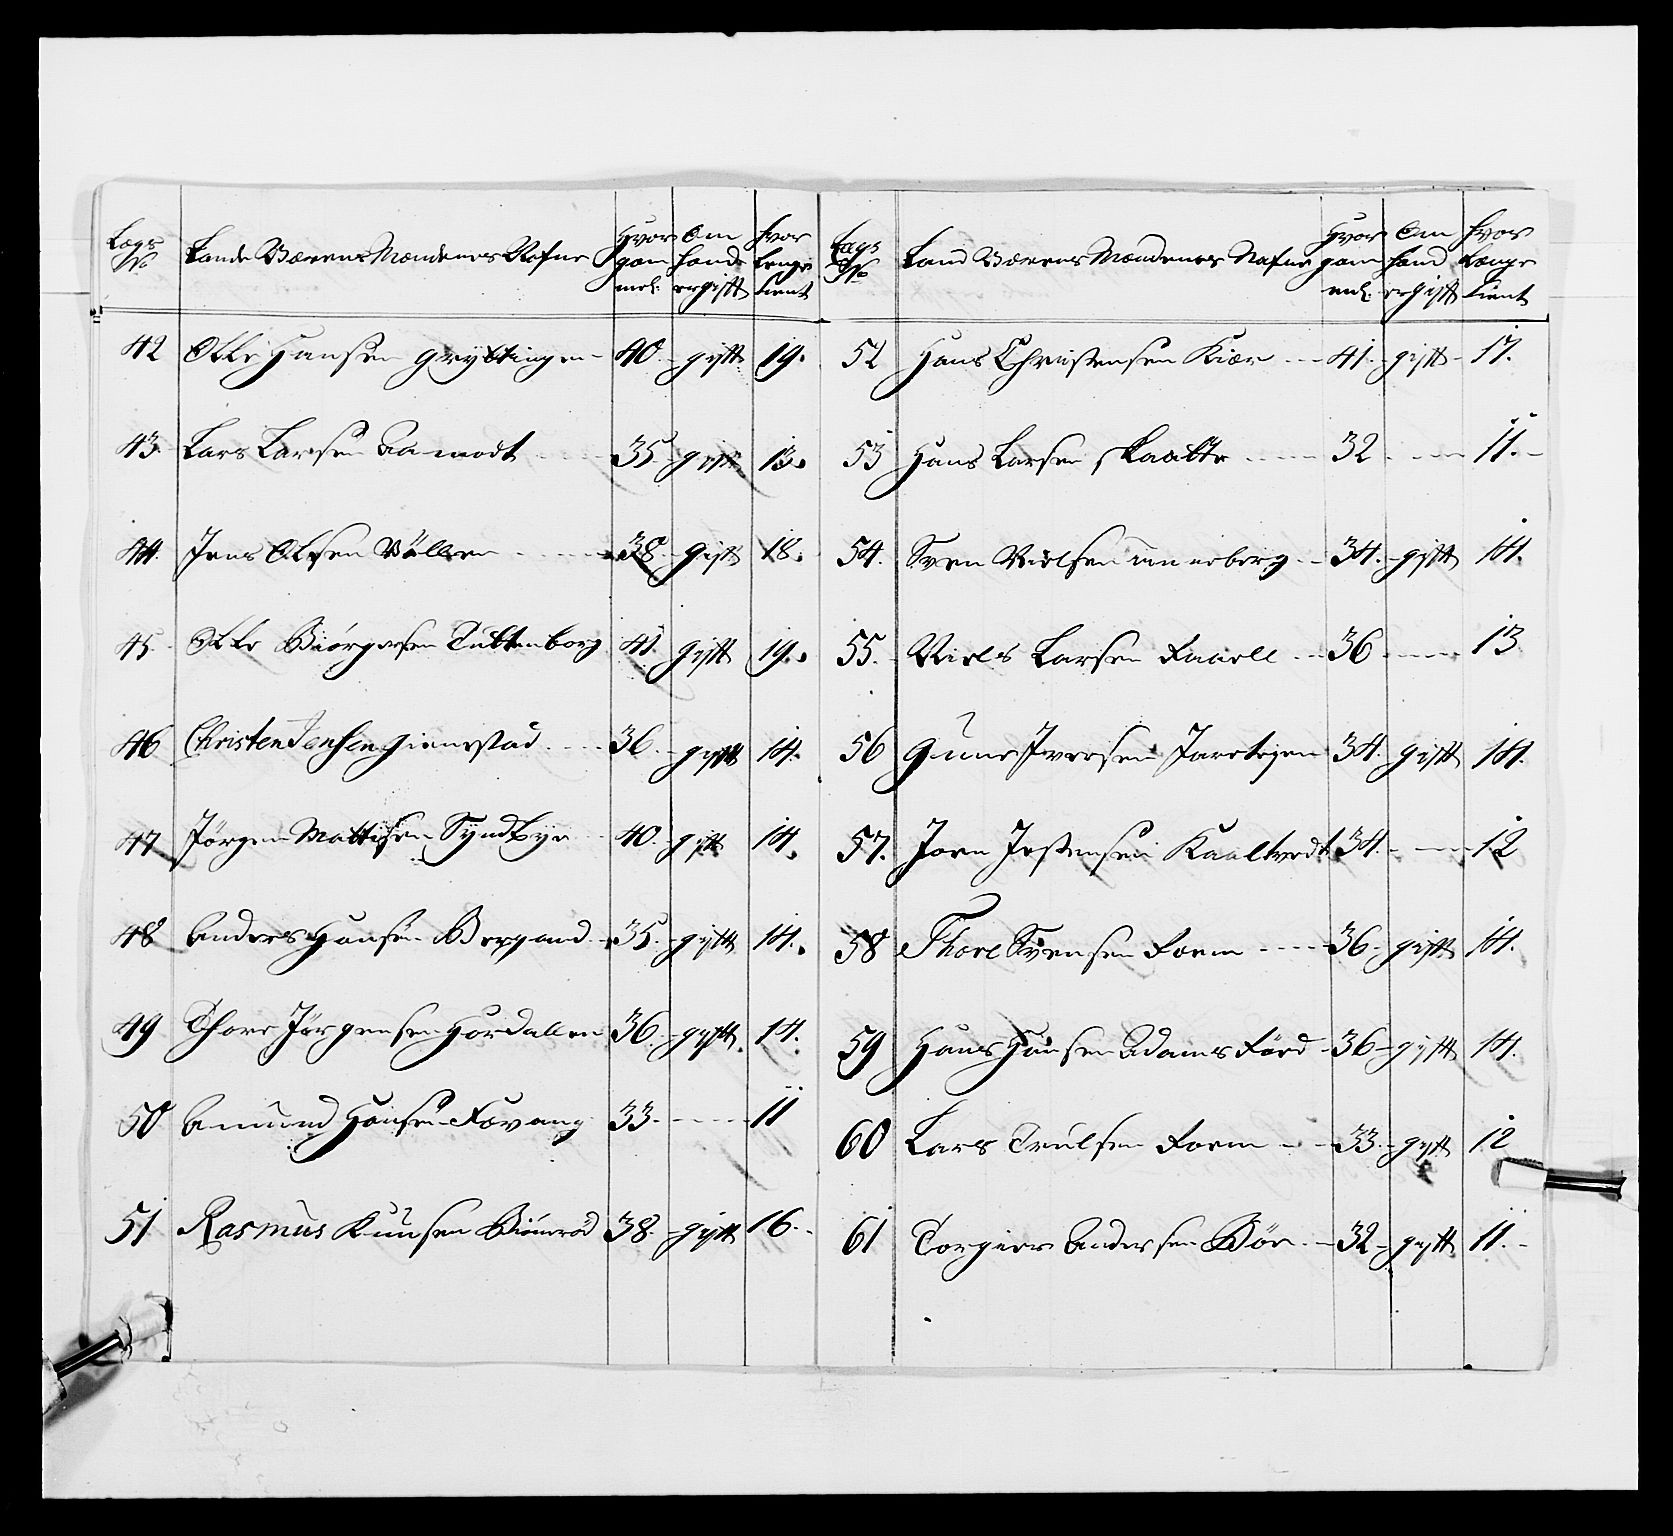 Lægs No Lande Værens Mændenes Nafne Hvor gam mel: Om hand er gift hvor lenge tient
42 Olle Hansen gryttingen - 40. - gift 19.
43. Lars Larsen Aamodt - 35. gift 13.
44. Jens Olsen Vøllen - 38. gift 18.
45. Olle Biørgersen Tuttenborg 41. gift 19.
46 Christen Jensen gienestad - 36. - gift 14.
47 Jørgen Mattisen Syndbye - 40. gift 14.
48 Anders Hansen Bergand - 35. - gift 14.
49 Thore Jørgensen Hordallen 36. - gift. 14.
50 Amund Hansen Favang 33. - 11
51 Rasmus Knusen Biønrød 38. - gift 16.
Lægs No Land Værens Mændenes Nafne Hvor gam mel. Om hand er gift hvor længe tient
52 Hans Christensen Kiær - 41. - gift - 17.
53 Hans Larsen skaatte - 32 - 11. -
54. Sven Nielsen - 34. - gift 14.
55. Niels Larsen Faaell - 36 - 13
56 Gune Iversen Jaretegen 34. gift 14.
57. Joen Jestensen Kaaltvedt 34. - 12
58 Thore Svensen Foen - 36 - gift 14.
59 Hans Hansen Adamsfiørd - 36 - gift 14.
60 Lars Trulsen Foen - 33. - gift 12
61 Torgier Andersen Bøe. - 32 - gift 11. -